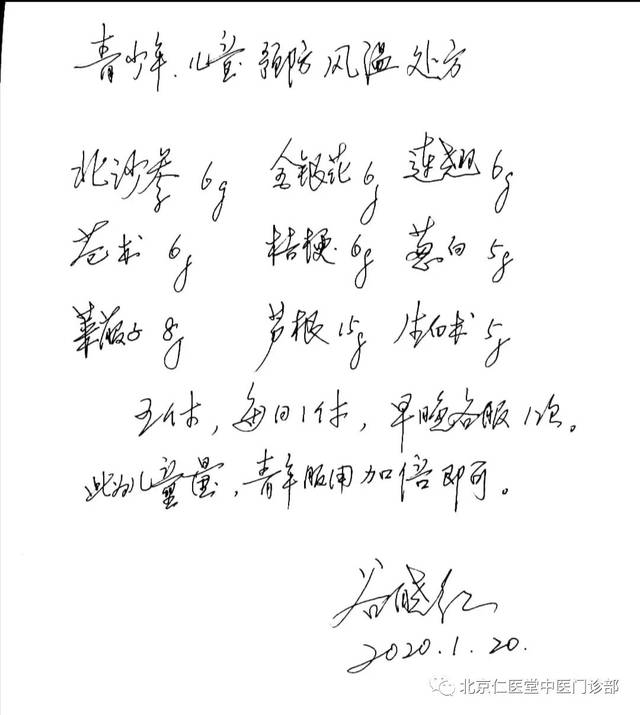 青少年、儿童预防风温处方
北沙参 6g 金银花 6g 连翘 6g
苍术 6g 桔梗 6g 葱白 5g
莱菔子 8g 芦根 15g 生白术 5g
五付，每日1付，早晚各服1次。
此为儿童量，青年服用加倍即可。
谷晓红
2020.1.20.
北京仁医堂中医门诊部